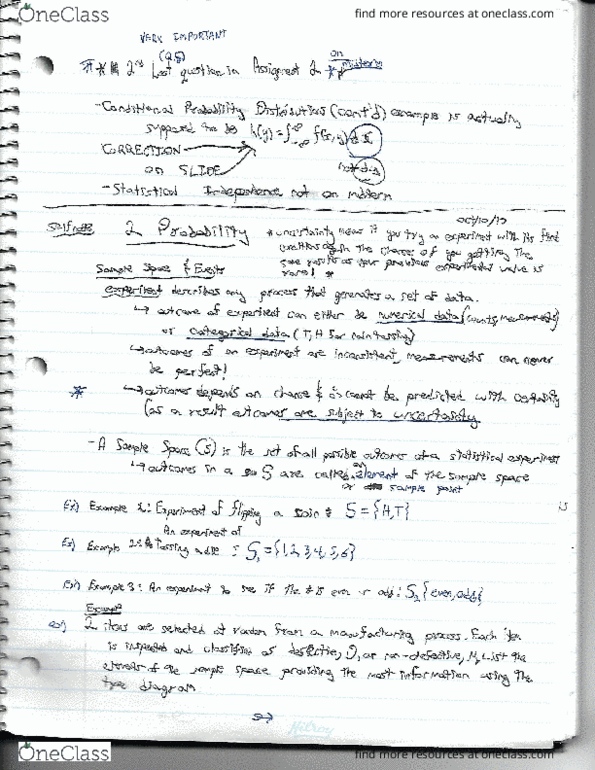 OneClass
find more resources at oneclass.com
VERY IMPORTANT
(Q5) on
2nd Last question in Assignment 2 midterm
- Conditional Probability Distributions (cont'd) example is actually
supposed to be h(y) = ∫ f(x,y) dx
CORRECTION
on SLIDE
not
- Statistical Independence not on midterm
2 Probability
* uncertainty means if you try an experiment with its first
the chances of you getting the
same results as your previous experimental value is
rare! *
Sample Space & Events
experiment describes any process that generates a set of data.
↳ outcome of experiment can either be numerical data (counts, measurements)
or categorical data (T, H for coin tossing)
↳ outcomes of an experiment are inconsistent, measurements can never
be perfect!
* ↳ outcomes depends on chance & cannot be predicted with certainty
(as a result outcomes are subject to uncertainty
- A Sample Space (S) is the set of all possible outcomes of a statistical experiment
↳ outcomes in a S are called an element of the sample space
or sample point
Ex) Example 1: Experiment of flipping a coin : S = {H,T}
An experiment of
Ex) Example 2: tossing a die : S₁ = {1,2,3,4,5,6}
Ex) Example 3: An experiment to see if the # is even or odd : S₂ {even, odd}
Example
ex) 2 items are selected at random from a manufacturing process. Each item
is inspected and classified as defective, D, or non-defective, N. List the
elements of the sample space providing the most information using the
tree diagram
Hilroy
OneClass
find more resources at oneclass.com